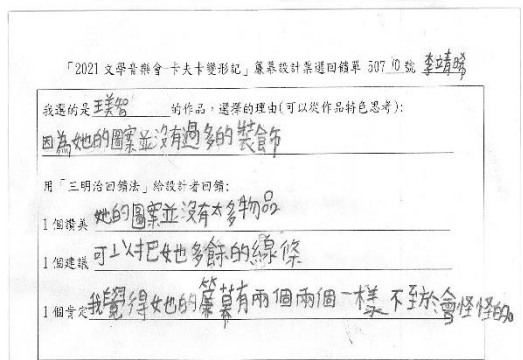 「2021文學音樂會-卡夫卡變形記」簾幕設計票選回饋單 507 10 號 李靖晞
我選的是 王美智 的作品,選擇的理由(可以從作品特色思考):
因為她的圖案並沒有過多的裝飾
用「三明治回饋法」給設計者回饋:
1個讚美 她的圖案並沒有太多物品
1個建議 可以把她多餘的線條
1個肯定 我覺得她的簾幕有兩個兩個一樣 不至於會怪怪的。